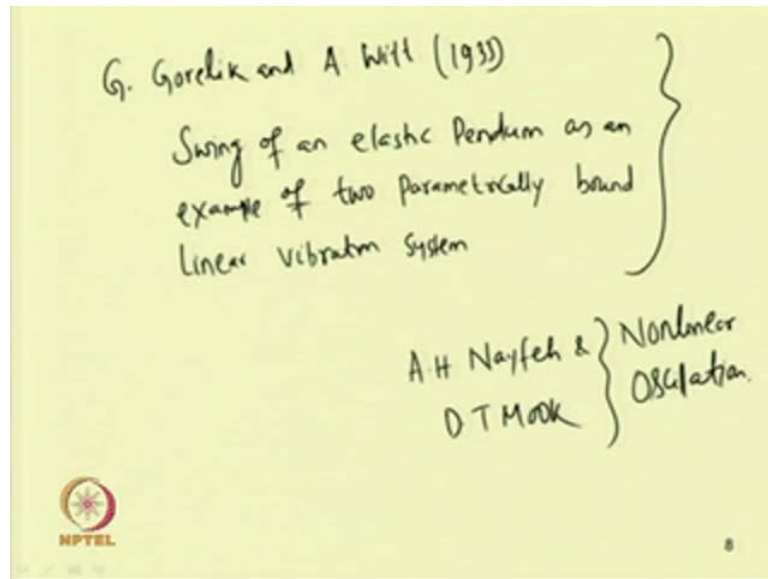 G. Gorelik and A Witt (1933)
Swing of an elastic Pendum as an
example of two Parametrically bound
Linear Vibratn System
A.H Nayfeh &
D T Mook
Nonlinear
Oscilation.
NPTEL
8